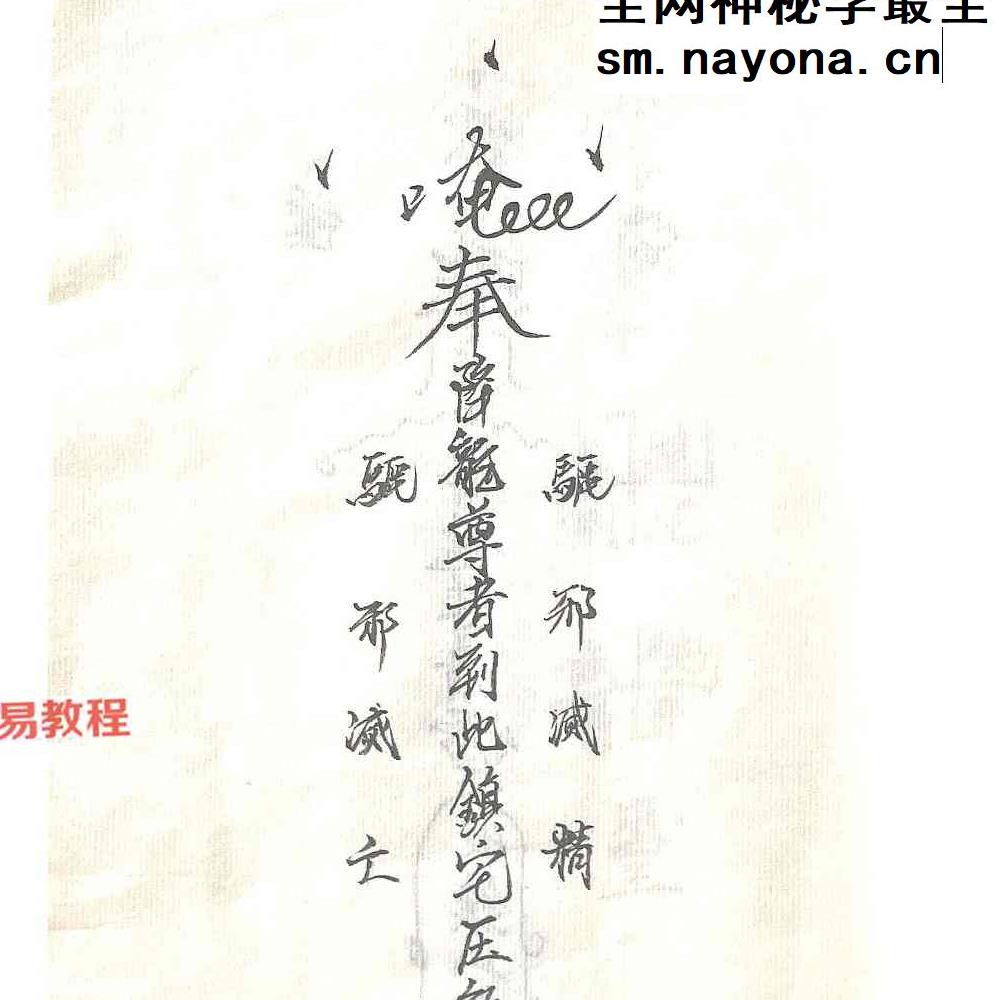 全网神秘学最全
sm.nayona.cn
唵
奉降龍尊者到此鎮宅圧
驅邪滅精
驅邪滅亡
易教程